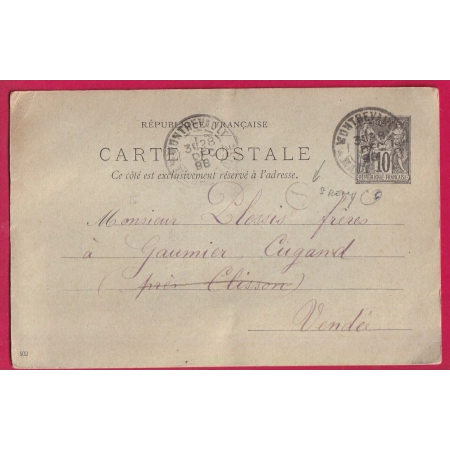 RÉPUBLIQUE FRANÇAISE
CARTE POSTALE
Ce côté est exclusivement réservé à l'adresse.
MONTREVAULT
28
DEC
98
MONTREVAULT
DEC
98
10
REPUBLIQUE FRANÇAISE
Monsieur Plessis frères
à Gaumier Cugand
(près Clisson)
Vendée